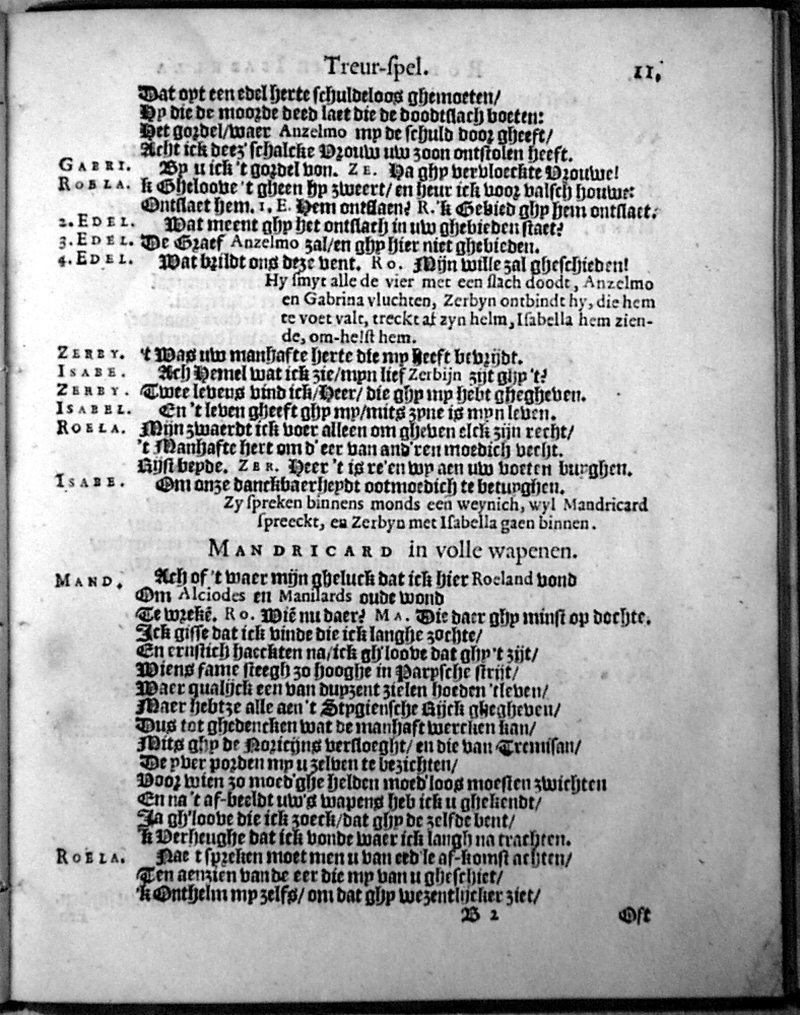 Treur-spel. 11.
Dat oyt een edel herte schuldeloos ghemoeten/
Hy die de moorde deed laet die de doodtslach boeten:
Het gordel/waer Anzelmo my de schuld door gheeft/
Acht ick deez' schalcke Vrouw uw zoon ontstolen heeft.
GABRI. By u ick 't gordel von. ZE. Ha ghy vervloeckte Vrouwe!
ROELA. k Gheloove 't gheen hy zweert/ en heur ick voor valsch houwe:
Ontslaet hem. 1. E. Hem ontslaen? R. 'k Gebied ghy hem ontslaet.
2. EDEL. Wat meent ghy het ontslach in uw ghebieden staet?
3. EDEL. De Graef Anzelmo zal/en ghy hier niet ghebieden.
4. EDEL. Wat brildt ons deze vent. RO. Mijn wille zal gheschieden!
Hy smyt alle de vier met een slach doodt, Anzelmo
en Gabrina vluchten, Zerbyn ontbindt hy, die hem
te voet valt, treckt af zyn helm, Isabella hem zien-
de, om-helst hem.
ZERBY. 't Was uw manhafte herte die my heeft bevrijdt.
ISABE. Ach Hemel wat ick zie/myn lief Zerbijn zijt ghy 't?
ZERBY. Twee levens vind ick/Heer/ die ghy my hebt ghegheven.
ISABEL. En 't leven gheeft ghy my/mits zyne is myn leven.
ROELA. Mijn zwaerdt ick voer alleen om gheven elck zijn recht/
't Manhafte hert om d'eer van and'ren moedich vecht.
Rijst beyde. ZER. Heer 't is re'en wy aen uw voeten buyghen.
ISABE. Om onze danckbaerheydt ootmoedich te betuyghen.
Zy spreken binnens monds een weynich, wyl Mandricard
spreeckt, en Zerbyn met Isabella gaen binnen.
MANDRICARD in volle wapenen.
MAND. Ach of 't waer mijn gheluck dat ick hier Roeland vond
Om Alciodes en Manilards oude wond
Te wrekē. RO. Wiē nu daer? MA. Die daer ghy minst op dochte.
Ick gisse dat ick vinde die ick langhe zochte/
En ernstich haeckten na/ick gh'loove dat ghy 't zijt/
Wiens fame steegh zo hooghe in Parysche strijt/
Waer qualijck een van duyzent zielen hoeden 'tleven/
Maer hebtze alle aen 't Stygiensche Rijck ghegheven/
Dus tot ghedencken wat de manhaft wercken kan/
Mits ghy de Noricijns versloeght/ en die van Tremisan/
De yver porden my u zelven te bezichten/
Voor wien zo moed'ghe helden moed'loos moesten zwichten
En na 't af-beeldt uw's wapens heb ick u ghekendt/
Ja gh'loove die ick zoeck/dat ghy de zelfde bent/
'k Verheughe dat ick vonde waer ick langh na trachten.
ROELA. Nae t spreken moet men u van eed'le af-komst achten/
Ten aenzien van de eer die my van u gheschiet/
'k Onthelm my zelfs/ om dat ghy wezentlijcker ziet/
B 2 Oft